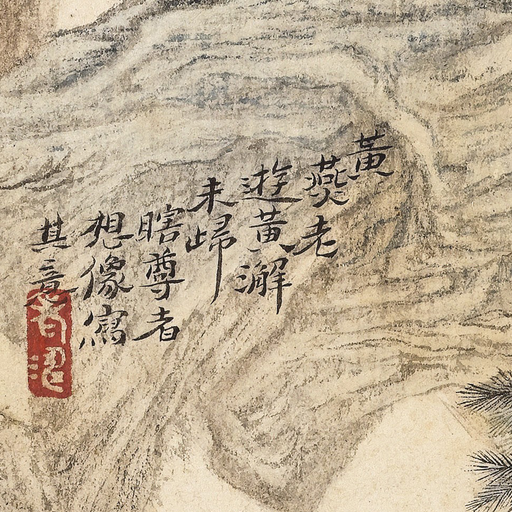 黃
燕老
遊黃澥
未歸
瞎尊者
想像寫
其意